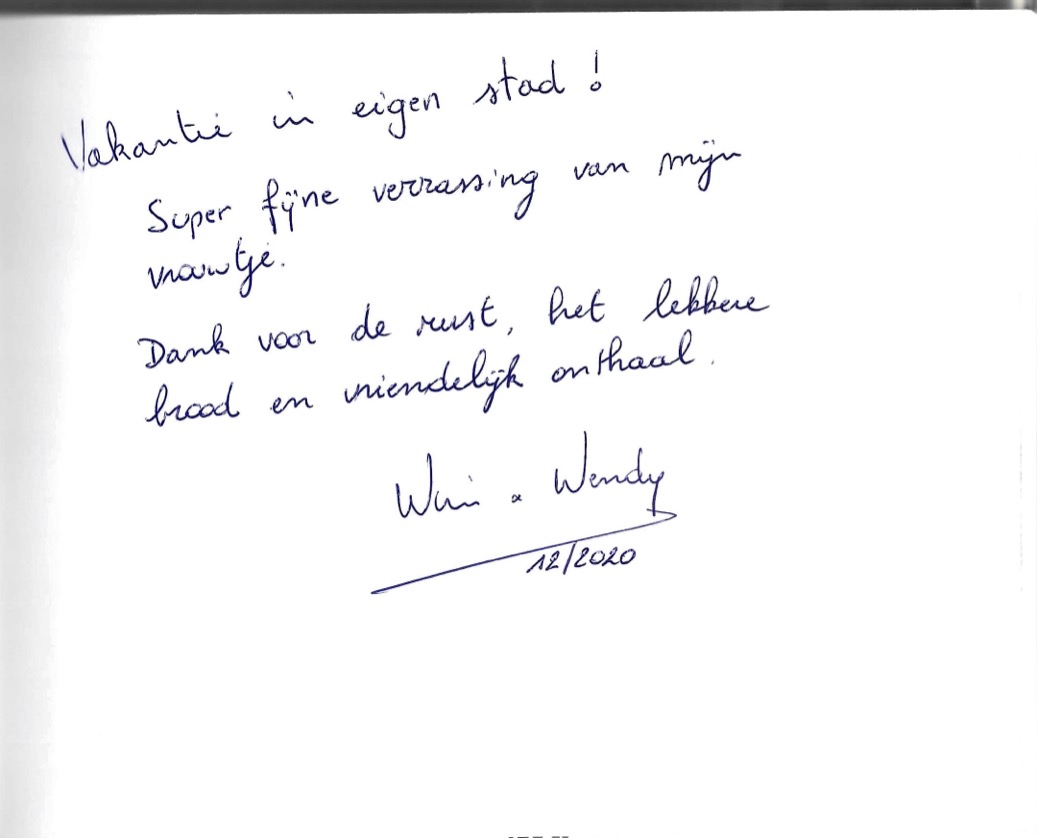 Vakantie in eigen stad!
Super fijne verrassing van mijn
vrouwtje.
Dank voor de rust, het lekkere
brood en vriendelijk onthaal.
Wim & Wendy
12/2020